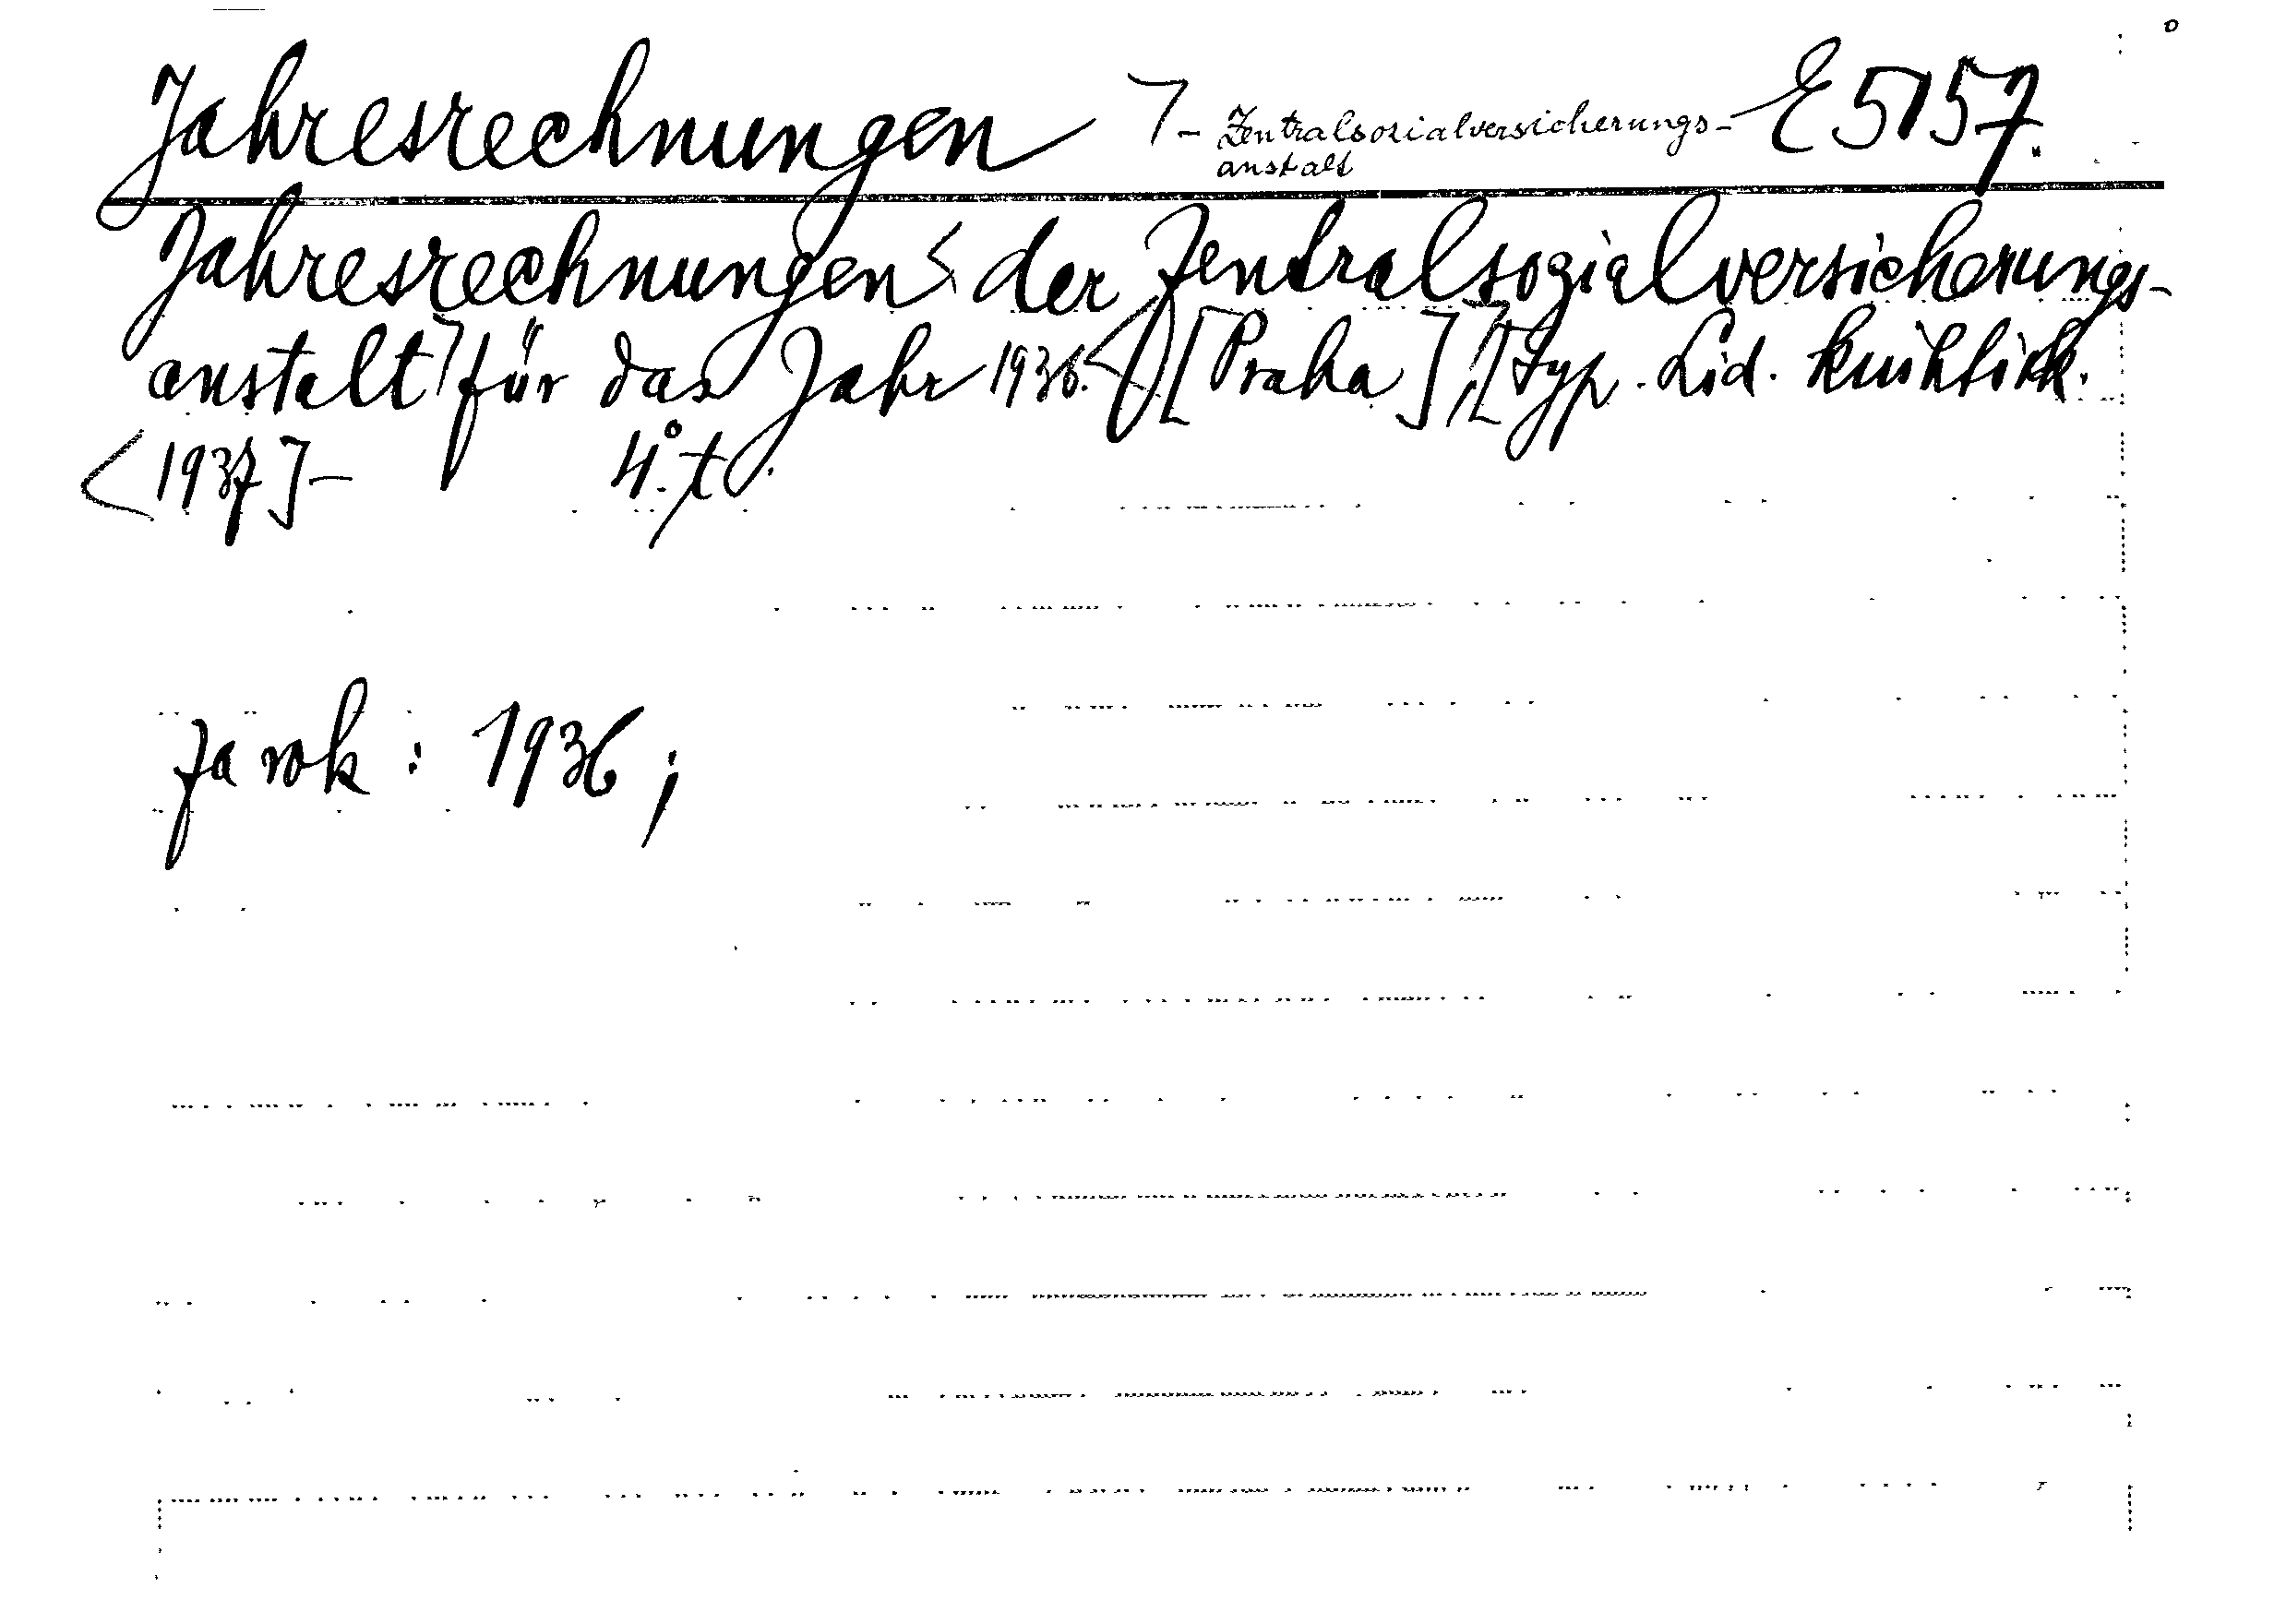 Jahresrechnungen ⁊ - Zentralsozialversicherungs- E 5157.
anstalt
Jahresrechnungen < der Zentralsozialversicherungs-
anstalt ⁊ für das Jahr 1936. < [Praha], [Typ. Lid.
< 1937] - 4°. t.
Za rok : 1936 ;